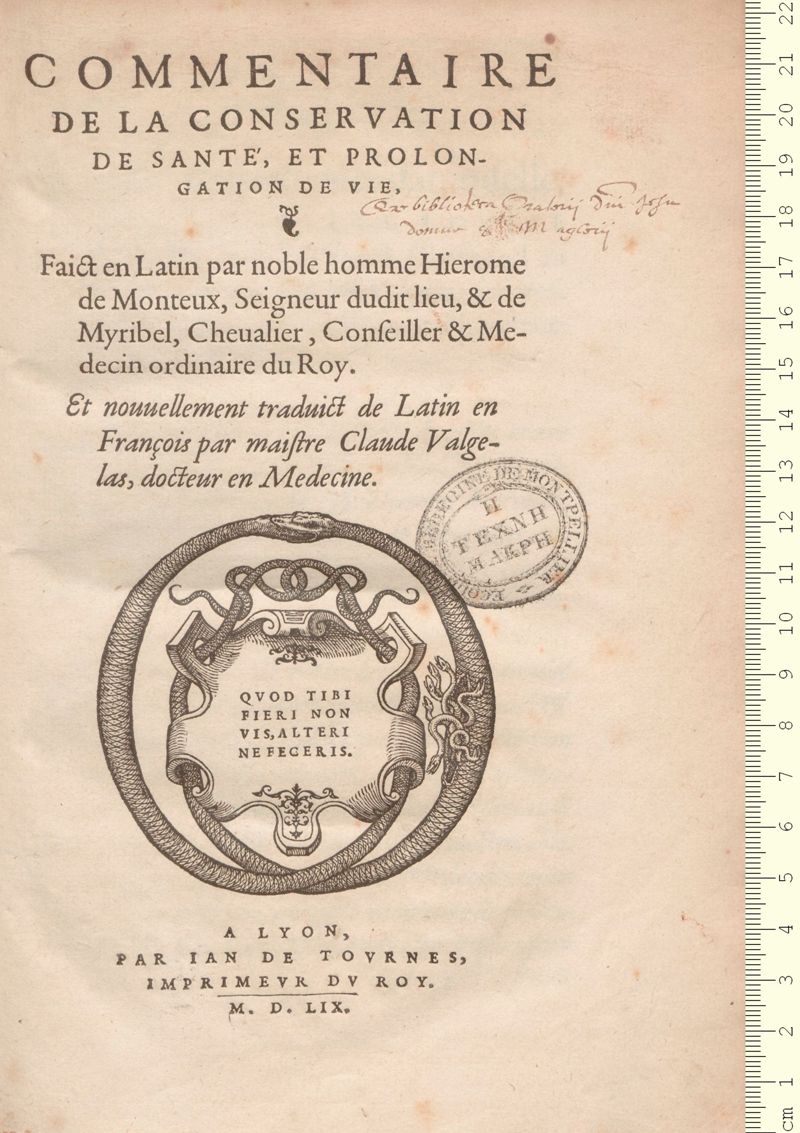 COMMENTAIRE
DE LA CONSERVATION
DE SANTE', ET PROLON-
GATION DE VIE,
Ex bibliotheca Oratorij Dñi Jesu
domus S. Maglorij
Faict en Latin par noble homme Hierome
de Monteux, Seigneur dudit lieu, & de
Myribel, Cheualier, Conſeiller & Me-
decin ordinaire du Roy.
Et nouuellement traduict de Latin en
François par maiſtre Claude Valge-
las, docteur en Medecine.
ECOLE DE MEDECINE DE MONTPELLIER
Η
ΤΕΧΝΗ
ΜΑΚΡΗ
QVOD TIBI
FIERI NON
VIS, ALTERI
NE FECERIS.
A LYON,
PAR IAN DE TOVRNES,
IMPRIMEVR DV ROY.
M. D. LIX.
cm 1 2 3 4 5 6 7 8 9 10 11 12 13 14 15 16 17 18 19 20 21 22